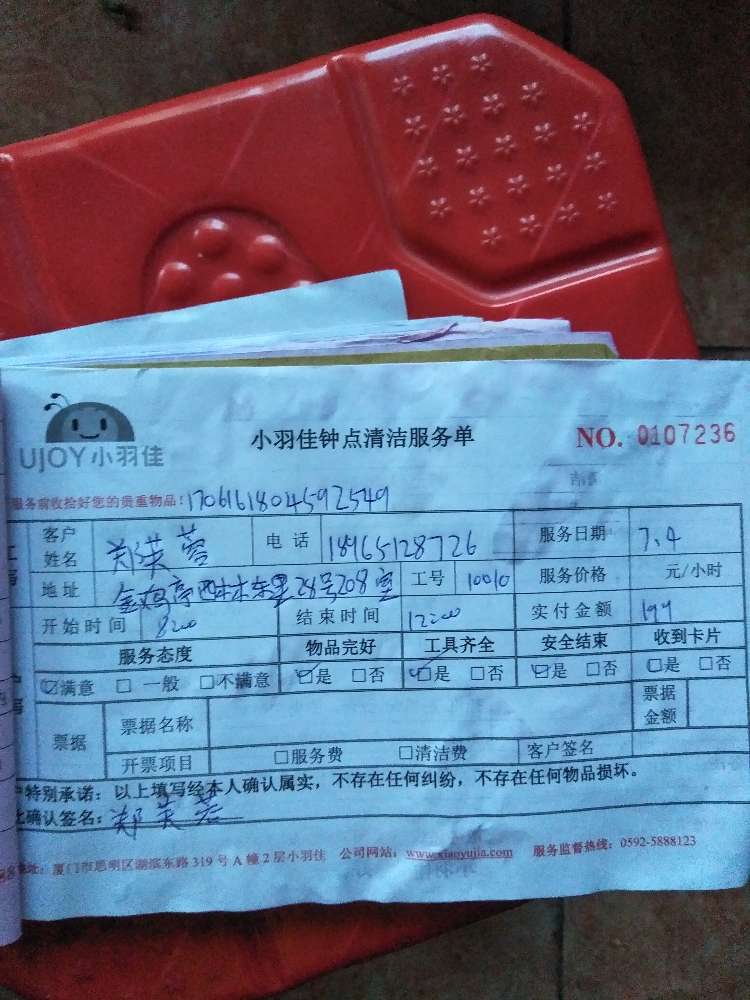 UJOY小羽佳
小羽佳钟点清洁服务单
NO. 0107236
服务前收拾好您的贵重物品!1706161804592549
客户姓名 郑芙蓉 电话 18965128726 服务日期 7.4
地址 金鸡亭 28号208室 工号 10010 服务价格 元/小时
开始时间 8:00 结束时间 12:00 实付金额 194
服务态度 物品完好 工具齐全 安全结束 收到卡片
☑满意 □一般 □不满意 ☑是 □否 ☑是 □否 ☑是 □否 ☑是 □否
票据 票据名称 票据金额
开票项目 □服务费 □清洁费 客户签名
特别承诺:以上填写经本人确认属实,不存在任何纠纷,不存在任何物品损坏。
确认签名:郑芙蓉
地址:厦门市思明区湖滨东路 319 号 A 幢 2 层小羽佳 公司网站:www.xiaoyujia.com 服务监督热线:0592-5888123